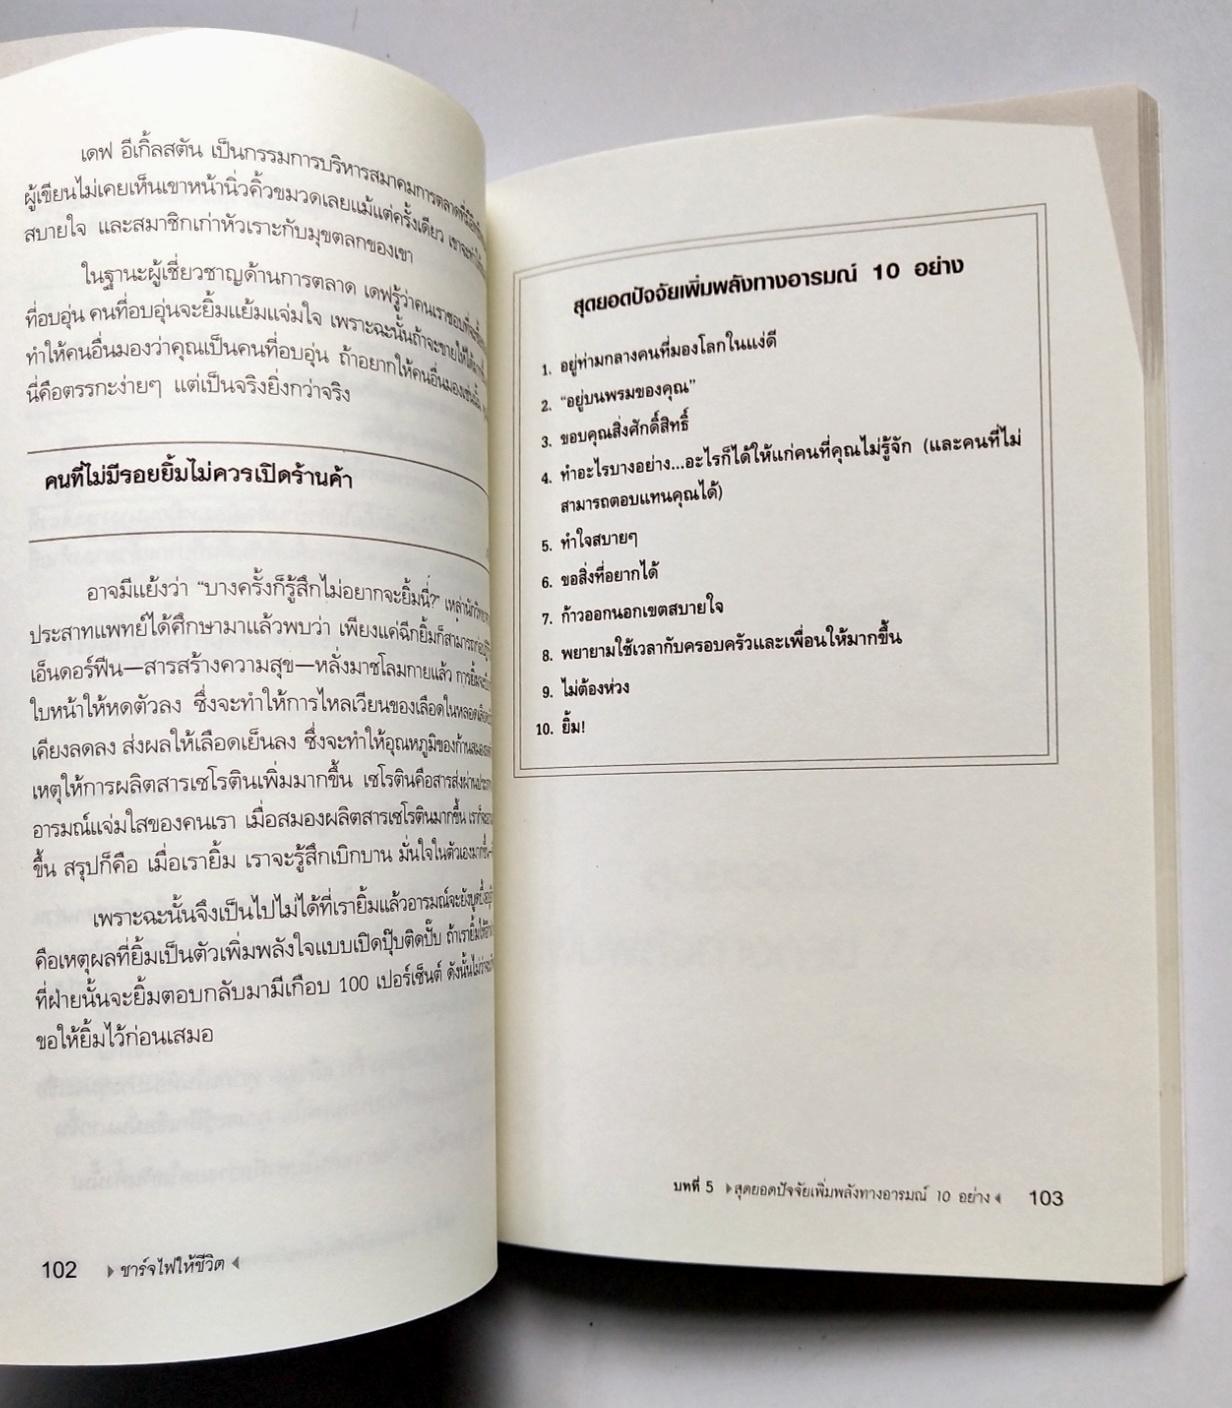 เดฟ อีเกิ้ลสตัน เป็นกรรมการบริหารสมาคมการตลาด
ผู้เขียนไม่เคยเห็นเขาหน้านิ่วคิ้วขมวดเลยแม้แต่ครั้งเดียว
สบายใจ และสมาชิกเก่าหัวเราะกับมุขตลกของเขา
ในฐานะผู้เชี่ยวชาญด้านการตลาด เดฟรู้ว่าคนเราชอบ
ที่อบอุ่น คนที่อบอุ่นจะยิ้มแย้มแจ่มใจ เพราะฉะนั้นถ้าจะขายให้ได้
ทำให้คนอื่นมองว่าคุณเป็นคนที่อบอุ่น ถ้าอยากให้คนอื่นมองเช่นนั้น
นี่คือตรรกะง่ายๆ แต่เป็นจริงยิ่งกว่าจริง
คนที่ไม่มีรอยยิ้มไม่ควรเปิดร้านค้า
อาจมีแย้งว่า “บางครั้งก็รู้สึกไม่อยากจะยิ้มนี่?”
ประสาทแพทย์ได้ศึกษามาแล้วพบว่า เพียงแค่ฉีกยิ้มก็สามารถ
เอ็นดอร์ฟีน—สารสร้างความสุข—หลั่งมาชโลมกายแล้ว
ใบหน้าให้หดตัวลง ซึ่งจะทำให้การไหลเวียนของเลือดในหลอดเลือด
เคียงลดลง ส่งผลให้เลือดเย็นลง ซึ่งจะทำให้อุณหภูมิของก้านสมอง
เหตุให้การผลิตสารเซโรตินเพิ่มมากขึ้น เซโรตินคือสารส่งผ่าน
อารมณ์แจ่มใสของคนเรา เมื่อสมองผลิตสารเซโรตินมากขึ้น
ขึ้น สรุปก็คือ เมื่อเรายิ้ม เราจะรู้สึกเบิกบาน มั่นใจในตัวเองมากขึ้น
เพราะฉะนั้นจึงเป็นไปไม่ได้ที่เรายิ้มแล้วอารมณ์จะยังบูดบึ้ง
คือเหตุผลที่ยิ้มเป็นตัวเพิ่มพลังใจแบบเปิดปุ๊บติดปั๊บ ถ้าเรายิ้มให้
ที่ฝ่ายนั้นจะยิ้มตอบกลับมามีเกือบ 100 เปอร์เซ็นต์ ดังนั้น
ขอให้ยิ้มไว้ก่อนเสมอ
102 ชาร์จไฟให้ชีวิต
สุดยอดปัจจัยเพิ่มพลังทางอารมณ์ 10 อย่าง
1. อยู่ท่ามกลางคนที่มองโลกในแง่ดี
2. “อยู่บนพรมของคุณ”
3. ขอบคุณสิ่งศักดิ์สิทธิ์
4. ทำอะไรบางอย่าง...อะไรก็ได้ให้แก่คนที่คุณไม่รู้จัก (และคนที่ไม่
สามารถตอบแทนคุณได้)
5. ทำใจสบายๆ
6. ขอสิ่งที่อยากได้
7. ก้าวออกนอกเขตสบายใจ
8. พยายามใช้เวลากับครอบครัวและเพื่อนให้มากขึ้น
9. ไม่ต้องห่วง
10. ยิ้ม!
บทที่ 5 สุดยอดปัจจัยเพิ่มพลังทางอารมณ์ 10 อย่าง 103